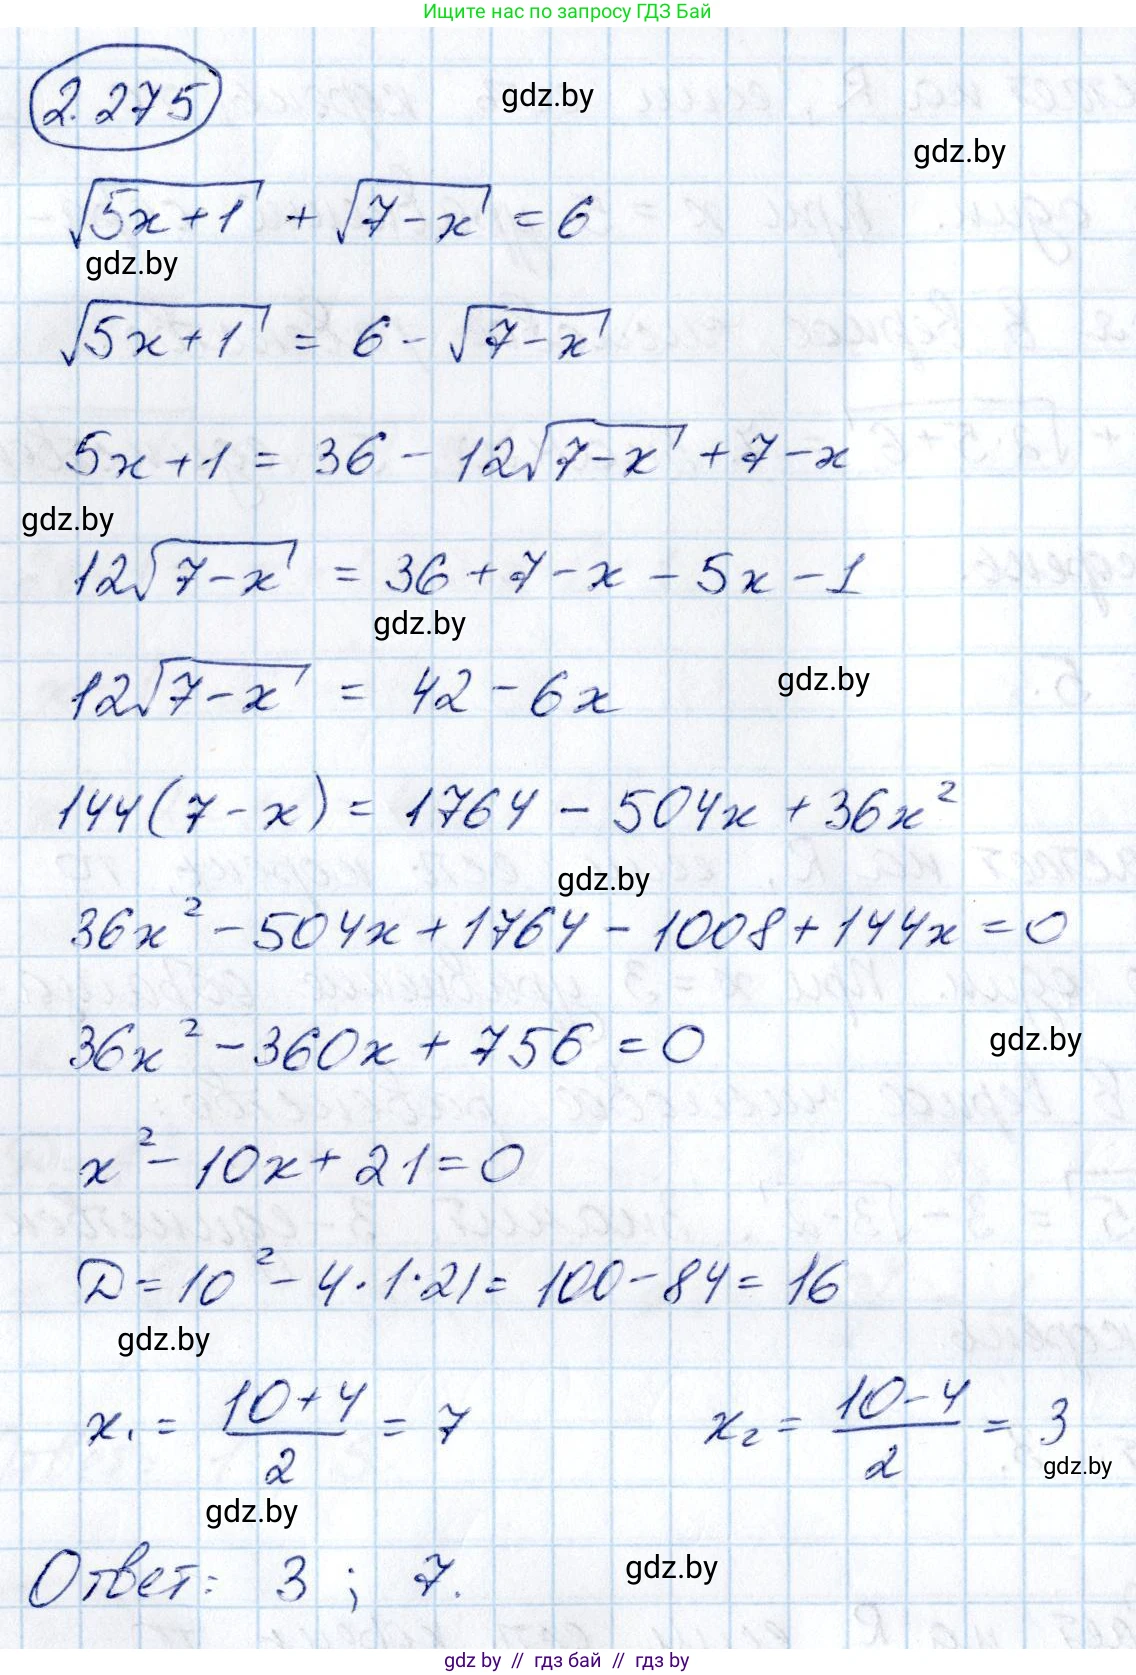 Ищите нас по запросу ГДЗ Бай
2.275
gdz.by
gdz.by
√(5x+1) + √(7-x) = 6
gdz.by
√(5x+1) = 6 - √(7-x)
5x+1 = 36 - 12√(7-x) + 7-x
gdz.by
12√(7-x) = 36+7-x-5x-1
gdz.by
12√(7-x) = 42-6x
gdz.by
144(7-x) = 1764 - 504x + 36x²
gdz.by
36x² - 504x + 1764 - 1008 + 144x = 0
36x² - 360x + 756 = 0
gdz.by
x² - 10x + 21 = 0
D = 10² - 4·1·21 = 100 - 84 = 16
gdz.by
x₁ = (10+4)/2 = 7 x₂ = (10-4)/2 = 3
gdz.by
gdz.by
Ответ: 3 ; 7.
gdz.by
gdz by // гдз бай // гдз by